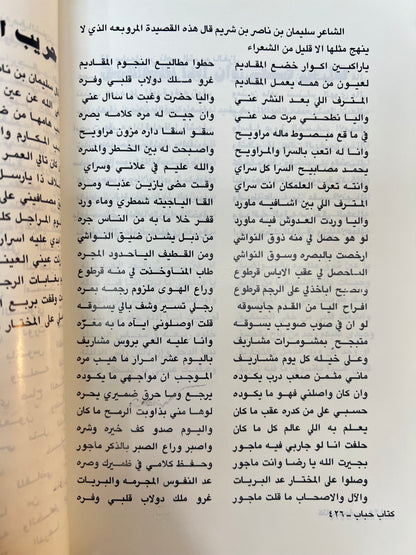 الشاعر سليمان بن ناصر بن شريم قال هذه القصيدة المروبعه الذي لا
ينهج مثلها الا قليل من الشعراء
ياراكبين اكوار خضع المقاديم حطوا مطاليع النجوم المقاديم
لعيون من همه يعمل المقاديم غرو ملك دولاب قلبي وفره
المترف اللي بعد النشر عني واليا حضرت وغبت ما سأل عني
واليا نطحني مرت صد عني وان جيت له مره كلامه بصره
ما في قاع مبصوطه ماله مراويح سقو آسقا داره مزون مراويح
وانا له اتعب بالسرآ والمراويح واصبحت له بين الخطر والمسره
يحمد مصابيح السرآ كل سراي والله عليم في علاني وسراي
وانته تعرف العلمكان انت سراي وقت مضى يازين عذبه ومره
المترف اللي بين اشافيه ماورد القا الياجيته شمطري وماء ورد
واليا وردت العدوش فيه ماورد قفر خلا ما به من الناس جره
لو هو حصل في منه ذوق النواشي من ذبل يشدن ضيق النواشي
ارخصت بالبصره وسوق النواشي ومن القطيف الياحدود المجره
الباحصل لي عقب الاياس قرطوع طاب المناوخذت لي منه قرطوع
والصبح اباخذلي على الرجم قرطوع وراع الهوى ملزوم رجمه بمره
افراح اليا من القدم جابسوقه رجلي تسير وشف بالي يسوقه
لو ان في صوب صويب يسوقه قلت اوصلوني اياه ما به مغره
متبجح بشومرات مشاريف وانا عليه العي بروس مشاريف
وعلى خيله كل يوم مشاريف باليوم عشر امرار ما هيب مره
ماني منمن صعب درب يكوده الموجب ان مواجهي ما يكوده
وان كان واصلني فهو ما يكوده يرجع وما حرق ضميري يحره
حسبي على من كدره عقب ما كان لوها مني بذاوبت الرمح ما كان
يعلم به اللي عالم كل ما كان واليوم صدو كف خيره وشره
حلفت انا لو جاربي فيه ماجور واصبر وراع الصبر بالذكر ماجور
بجيرت الله يا رضا وانت ماجور وحفظ كلامي في ظميرك وصره
وصلوا على المختار عد البريات عد النفوس المجرمه والبريات
والآل والاصحاب ما قلت ماجور غرو ملك دولاب قلبي وفره
كتاب حباب ـ ٤٢٦